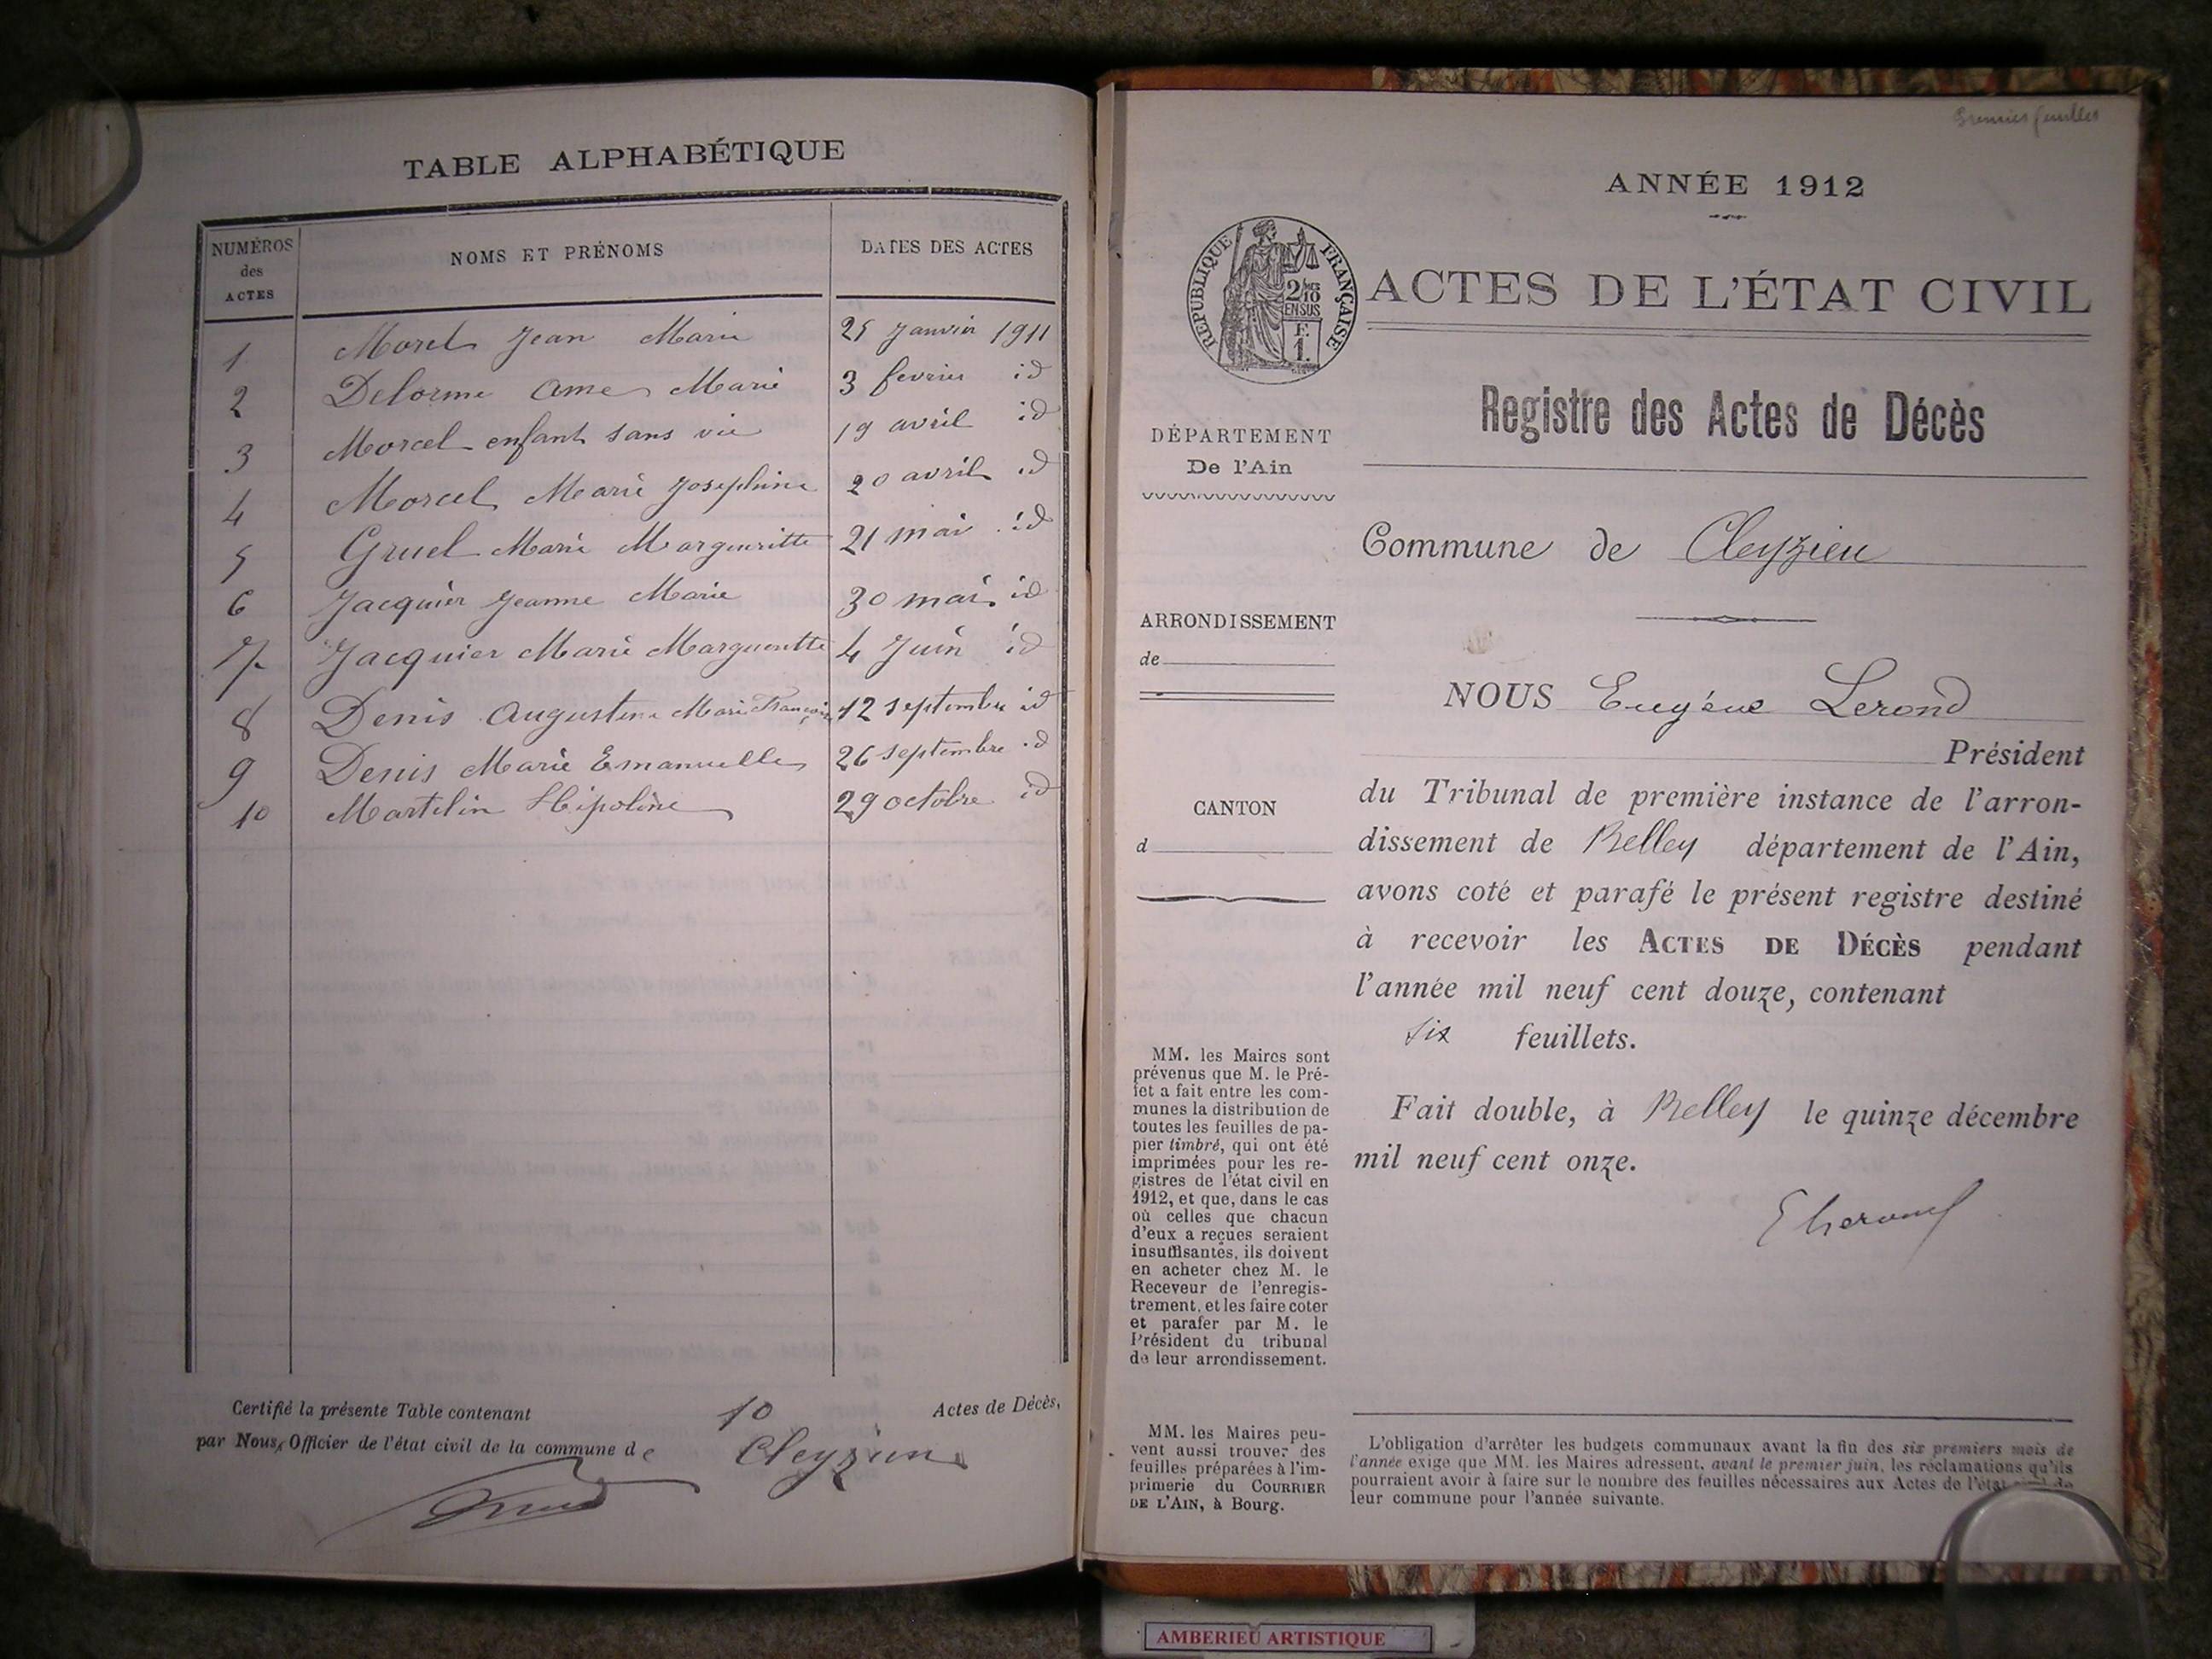 TABLE ALPHABÉTIQUE
NUMÉROS des ACTES
NOMS ET PRÉNOMS
DATES DES ACTES
1 Morel Jean Marie 25 Janvier 1911
2 Delorme Ame Marie 3 fevrier id
3 Morcel enfant sans vie 19 avril id
4 Morcel Marie Josephine 20 avril id
5 Gruel Marie Margueritte 21 mai id
6 Jacquier Jeanne Marie 30 mai id
7 Jacquier Marie Margueritte 4 Juin id
8 Denis Augustine Marie Françoise 12 septembre id
9 Denis Marie Emanuelle 26 septembre id
10 Martelin Hipoline 29 octobre id
Certifié la présente Table contenant 10 Actes de Décès,
par Nous, Officier de l'état civil de la commune de Cleyzieu
ANNÉE 1912
RÉPUBLIQUE FRANÇAISE
2/10
EN SUS
F.
1.
ACTES DE L'ÉTAT CIVIL
Registre des Actes de Décès
DÉPARTEMENT
De l'Ain
Commune de Cleyzieu
ARRONDISSEMENT
de
CANTON
d
NOUS Eugéne Lerond
Président
du Tribunal de première instance de l'arron-
dissement de Belley département de l'Ain,
avons coté et parafé le présent registre destiné
à recevoir les ACTES DE DÉCÈS pendant
l'année mil neuf cent douze, contenant
six feuillets.
Fait double, à Belley le quinze décembre
mil neuf cent onze.
MM. les Maires sont
prévenus que M. le Pré-
fet a fait entre les com-
munes la distribution de
toutes les feuilles de pa-
pier timbré, qui ont été
imprimées pour les re-
gistres de l'état civil en
1912, et que, dans le cas
où celles que chacun
d'eux a reçues seraient
insuffisantes, ils doivent
en acheter chez M. le
Receveur de l'enregis-
trement, et les faire coter
et parafer par M. le
Président du tribunal
de leur arrondissement.
MM. les Maires peu-
vent aussi trouver des
feuilles préparées à l'im-
primerie du COURRIER
DE L'AIN, à Bourg.
L'obligation d'arrêter les budgets communaux avant la fin des six premiers mois de
l'année exige que MM. les Maires adressent, avant le premier juin, les réclamations qu'ils
pourraient avoir à faire sur le nombre des feuilles nécessaires aux Actes de l'état civil de
leur commune pour l'année suivante.
AMBERIEU ARTISTIQUE